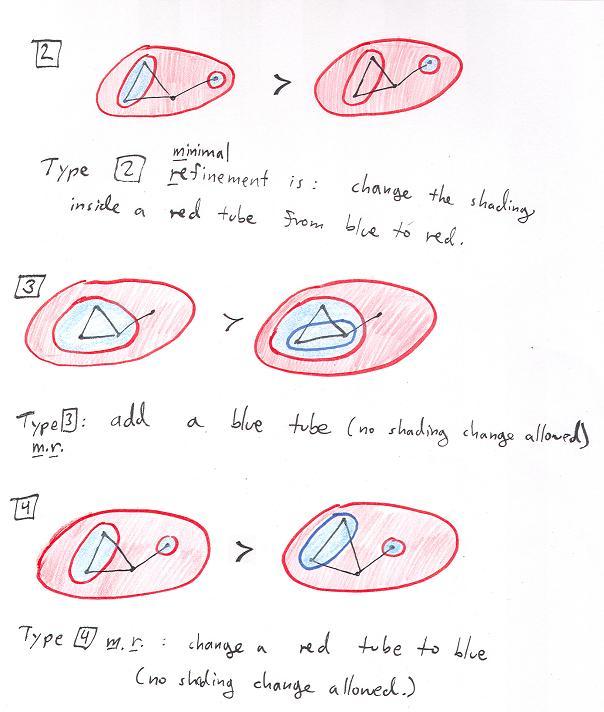 2
>
minimal
Type 2 refinement is: change the shading
inside a red tube from blue to red.
3
>
Type 3: add a blue tube (no shading change allowed)
m.r.
4
>
Type 4 m.r.: change a red tube to blue
(no shading change allowed.)